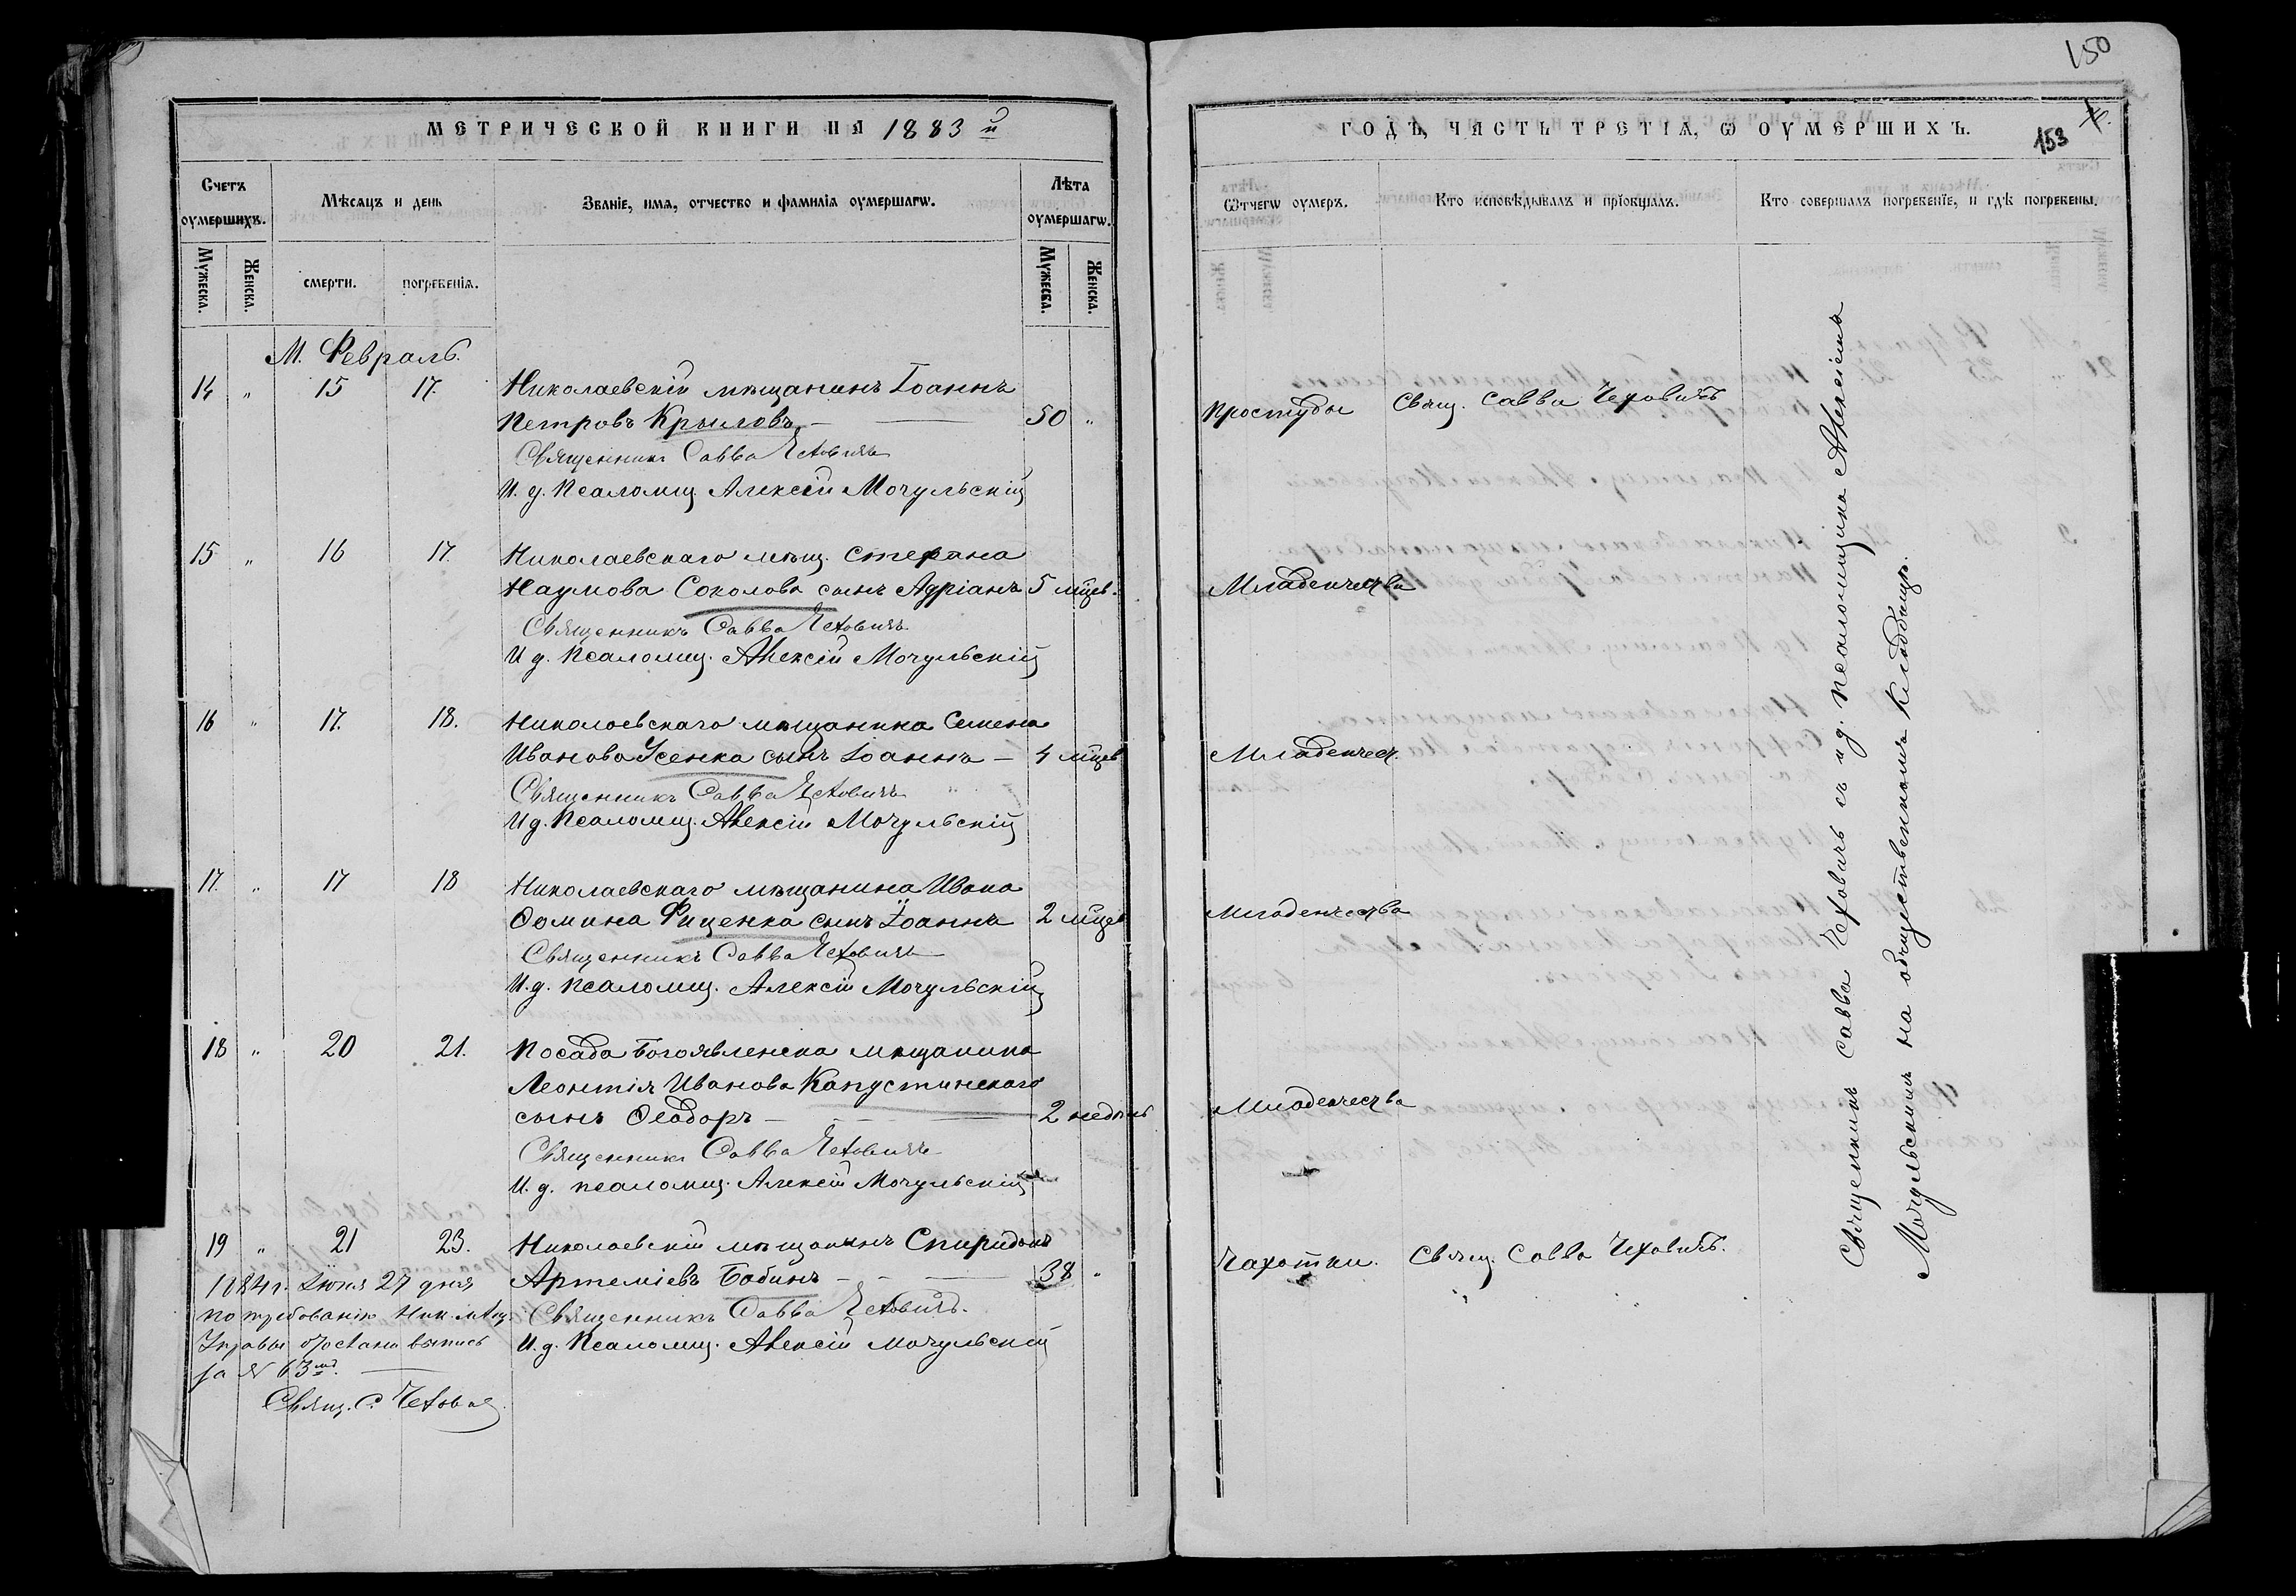 МЕТРИЧЕСКОЙ КНИГИ НА 1883й
Счетъ оумершихъ.
Мѣсяцъ и день
Званіе, имя, отчество и фамилія оумершагѡ.
Лѣта оумершагѡ.
Мужеска.
Женска.
смерти.
погребенія.
Мужеска.
Женска.
М. Февраль.
14 " 15 17. Николаевскій мѣщанинъ Іоаннъ
Петровъ Крыловъ — 50 "
Священникъ Савва Чеховичъ
И. д. Псаломщ. Алексій Мочульскій
15 " 16 17. Николаевскаго мѣщ. Стефана
Наумова Соколова сынъ Адріанъ 5 мцев.
Священникъ Савва Чеховичъ
И д. Псаломщ. Алексій Мочульскій
16 " 17. 18. Николаевскаго мѣщанина Семена
Иванова Усенка сынъ Іоаннъ — 4 мцев
Священникъ Савва Чеховичъ
И д. Псаломщ. Алексій Мочульскій
17. " 17 18 Николаевскаго мѣщанина Ивана
Ѳомина Фиценка сынъ Іоаннъ 2 мцев
Священникъ Савва Чеховичъ
И. д. псаломщ. Алексій Мочульскій
18 " 20 21. Посада Богоявленска мѣщанина
Леонтія Иванова Капустинскаго
сынъ Ѳеодоръ — 2 недѣль
Священникъ Савва Чеховичъ
И. д. псаломщ. Алексій Мочульскій
19 " 21 23. Николаевскій мѣщанинъ Спиридонъ
Артеміевъ Бабинъ — 38 "
Священникъ Савва Чеховичъ.
И. д. Псаломщ. Алексій Мочульскій
1884 г. Іюня 27 дня
по требованію Ник. Мѣщ.
Управы выпись
за № 63мъ.
Свящ. С. Чехович
150
153
ГОДЪ, ЧАСТЬ ТРЕТІѦ, Ѡ ОУМЕРШИХЪ.
Ѿтчегѡ оумеръ.
Кто исповѣдывалъ и пріобщалъ.
Кто совершалъ погребеніе, и гдѣ погребены.
Простуды Свящ. Савва Чеховичъ
Младенчества
Младенчес.
Младенчества
Младенчества
Чахотки. Свящ. Савва Чеховичъ.
Священникъ Савва Чеховичъ съ и д. псаломщика Алексіемъ
Мочульскимъ на общественномъ кладбищѣ.